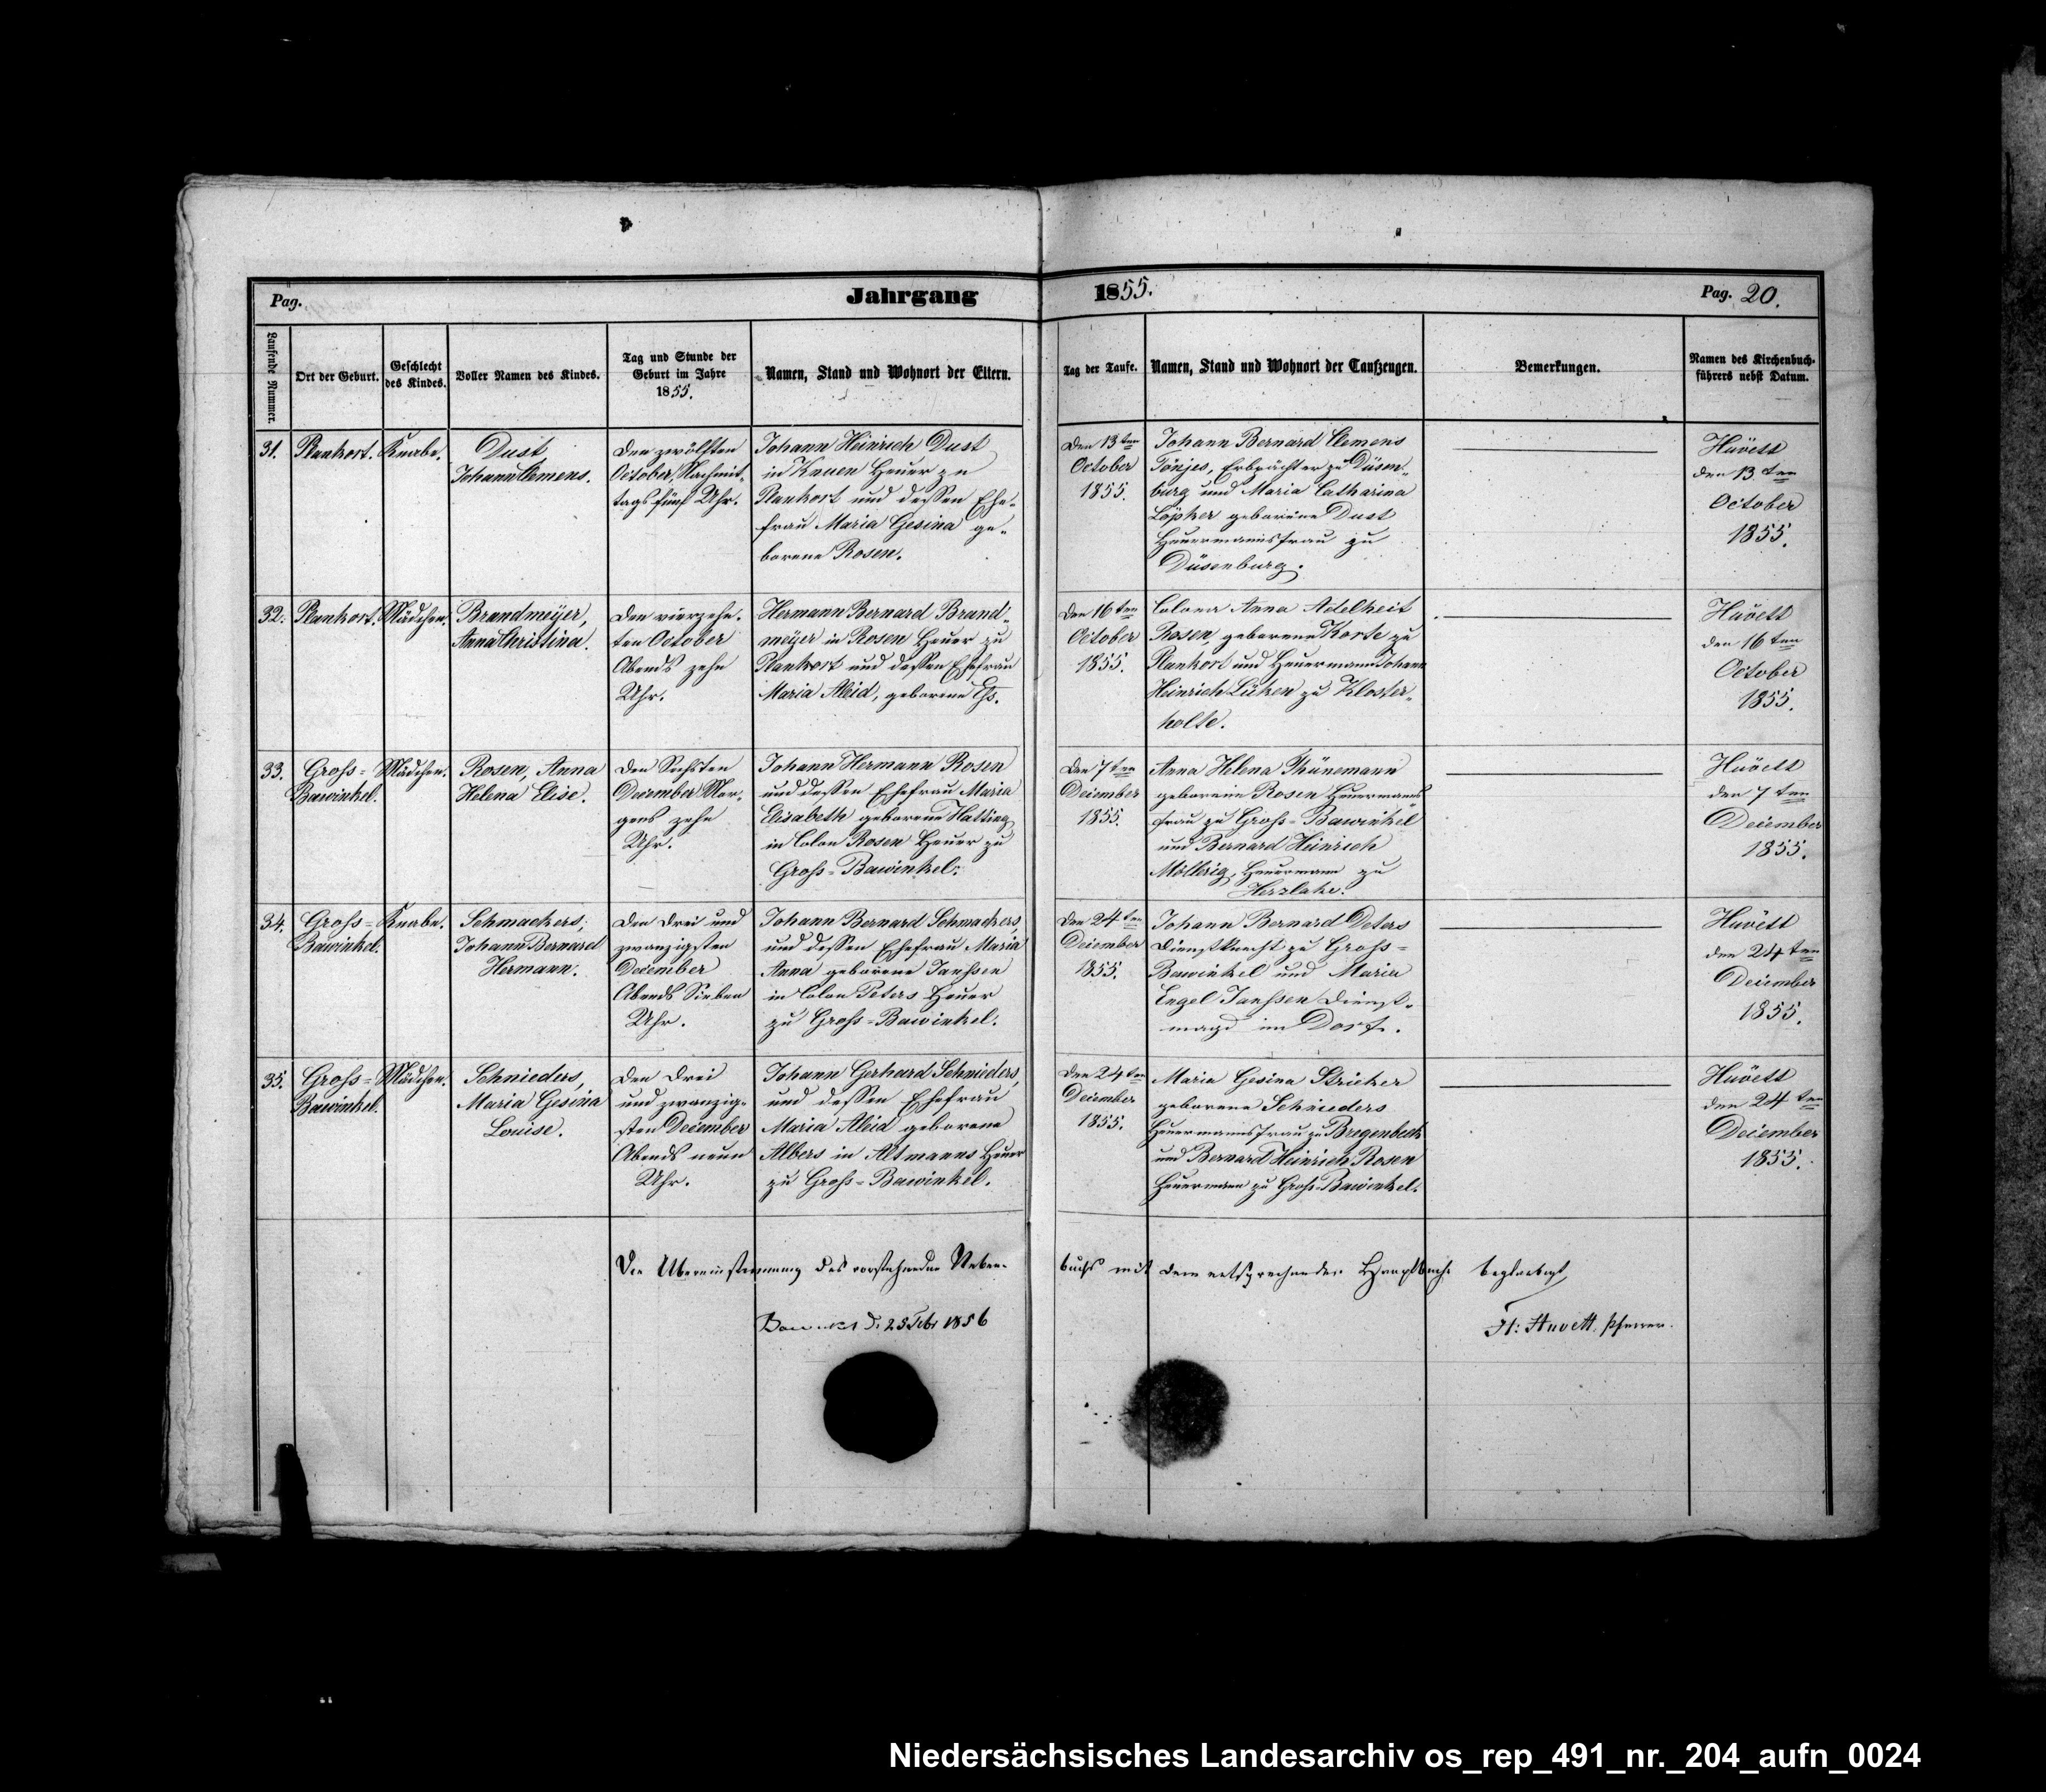 Pag.
Jahrgang
1855.
Pag. 20.
Laufende Nummer.
Ort der Geburt.
Geschlecht
des Kindes.
Voller Namen des Kindes.
Tag und Stunde der
Geburt im Jahre
1855.
Namen, Stand und Wohnort der Eltern.
Tag der Taufe.
Namen, Stand und Wohnort der Taufzeugen.
Bemerkungen.
Namen des Kirchenbuch-
führers nebst Datum.
31.
Plankort.
Knabe.
Dust,
Johann Clemens.
Den zwölften
October, Nachmit-
tags fünf Uhr.
Johann Heinrich Dust
in Knuen Heuer zu
Plankort und dessen Ehe-
frau Maria Gesina ge-
borene Rosen.
Den 13ten
October
1855.
Johann Bernard Clemens
Tönjes, Erbpächter zu Düsen-
burg und Maria Catharina
Löpker geborene Dust
Heuermannsfrau zu
Düsenburg.
Huvett
den 13ten
October
1855.
32.
Plankort.
Mädchen.
Brandmeÿer,
Anna Christina.
Den vierzehn-
ten October
Abends zehn
Uhr.
Hermann Bernard Brand-
meÿer in Rosen Heuer zu
Plankort und dessen Ehefrau
Maria Aleid, geborene Ehs.
Den 16ten
October
1855.
Colona Anna Adelheit
Rosen, geborene Korte zu
Plankort und Heuermann Johann
Heinrich Lüken zu Kloster-
holte.
Huvett
den 16ten
October
1855.
33.
Groß-
Bawinkel.
Mädchen.
Rosen, Anna
Helena Elise.
Den Sechsten
December Mor-
gens zehn
Uhr.
Johann Hermann Rosen
und dessen Ehefrau Maria
Elisabeth geborene Hatting
in Colon Rosen Heuer zu
Groß-Bawinkel.
Den 7ten
December
1855.
Anna Helena Thünemann
geborene Rosen Heuermanns-
frau zu Groß-Bawinkel
und Bernard Heinrich
Möllsig, Heuermann zu
Herzlake.
Huvett
den 7ten
December
1855.
34.
Groß-
Bawinkel.
Knabe.
Schmackers,
Johann Bernard
Hermann.
Den drei und
zwanzigsten
December
Abends Sieben
Uhr.
Johann Bernard Schmackers,
und dessen Ehefrau Maria
Anna geborene Janßen
in Colon Peters Heuer
zu Groß-Bawinkel.
Den 24ten
December
1855.
Johann Bernard Deters
Dienstknecht zu Groß-
Bawinkel und Maria
Engel Janßen Dienst-
magd im Dorf.
Huvett
den 24ten
December
1855.
35.
Groß-
Bawinkel.
Mädchen.
Schnieders,
Maria Gesina
Louise.
Den drei
und zwanzig-
sten December
Abends neun
Uhr.
Johann Gerhard Schnieders,
und dessen Ehefrau
Maria Aleid geborene
Albers in Altmanns Heuer
zu Groß-Bawinkel.
Den 24ten
December
1855.
Maria Gesina Stricker
geborene Schnieders
Heuermannsfrau zu Bregenbeck
und Bernard Heinrich Rosen
Heuermann zu Groß-Bawinkel.
Huvett
den 24ten
December
1855.
Die Übereinstimmung des vorstehenden Neben-
buchs mit dem entsprechenden Hauptbuche beglaubigt
Bawinkel d. 25 Febr 1856
H: Huvett, Pfarrer.
Niedersächsisches Landesarchiv os_rep_491_nr._204_aufn_0024